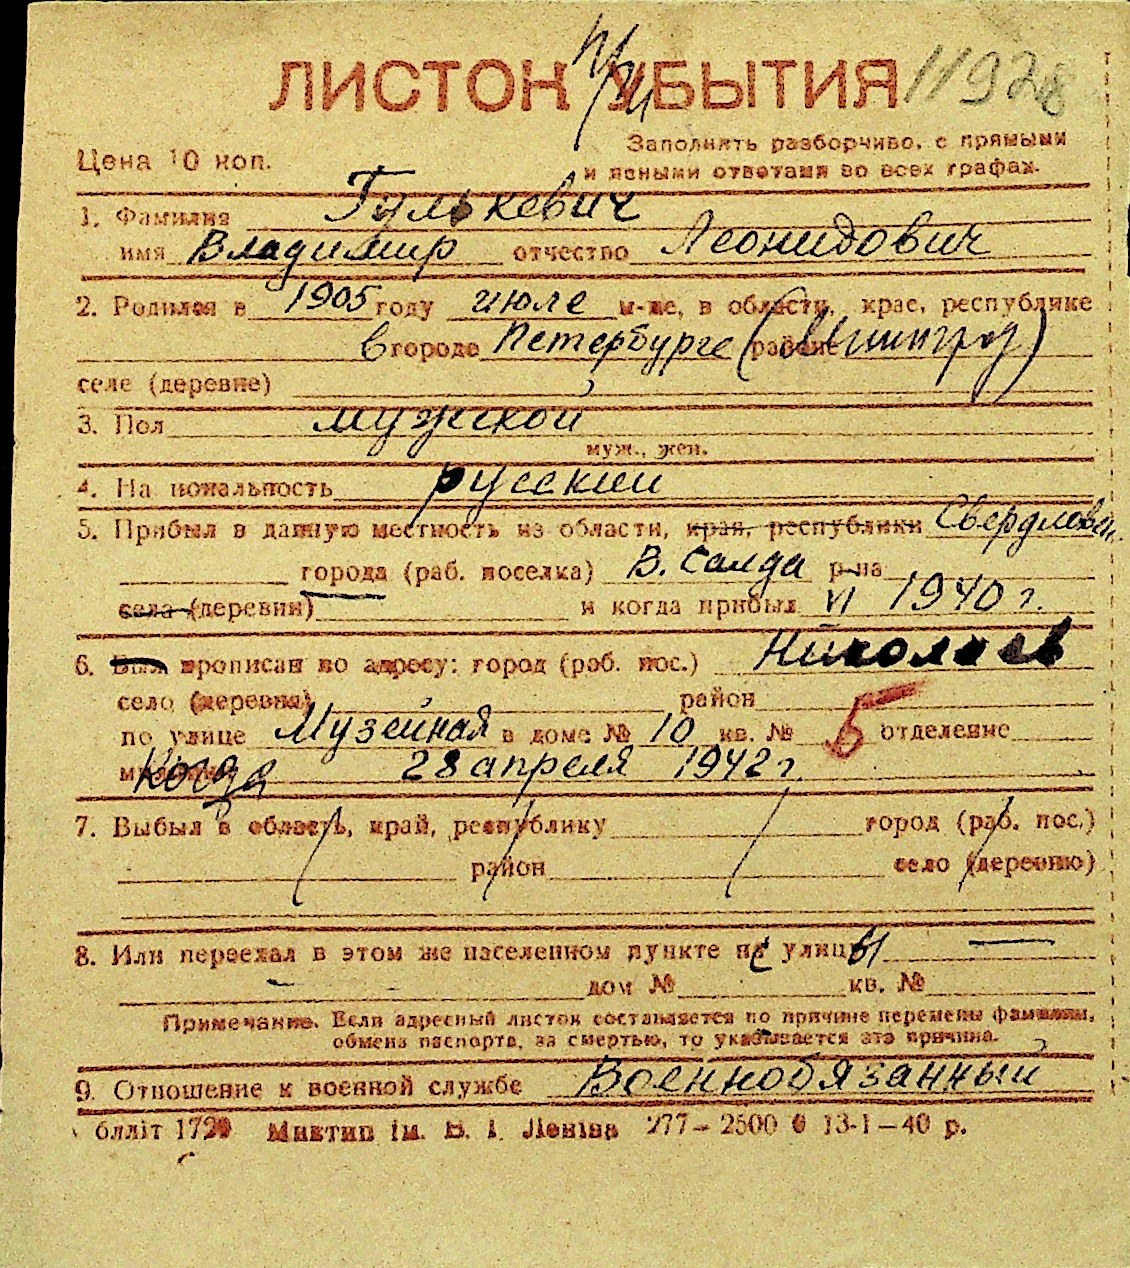 ЛИСТОК УБЫТИЯ 11928
Заполнять разборчиво, с прямыми
Цена 10 коп.
и ясными ответами во всех графах.
1. Фамилия Гулькевич
имя Владимир отчество Леонидович
2. Родился в 1905 году июле м-це, в области, крае, республике
в городе Петербурге (Ленинград) районе
селе (деревне)
3. Пол мужской
муж., жен.
4. Национальность русский
5. Прибыл в данную местность из области, края, республики Свердловск.
города (раб. поселка) В. Салда р-на
села (деревни) и когда прибыл VI 1940 г.
6. Был прописан по адресу: город (раб. пос.) Николаев
село (деревня) район
по улице Музейная в доме № 10 кв. № 5 отделение
Когда 28 апреля 1942 г.
7. Выбыл в область, край, республику город (раб. пос.)
район село (деревню)
8. Или переехал в этом же населенном пункте с улицы —
дом № кв. №
Примечание. Если адресный листок составляется по причине перемены фамилии,
обмена паспорта, за смертью, то указывается эта причина.
9. Отношение к военной службе Военнообязанный
блліт 1729 Миктип ім. В. І. Леніна 277–2500 13-1–40 р.